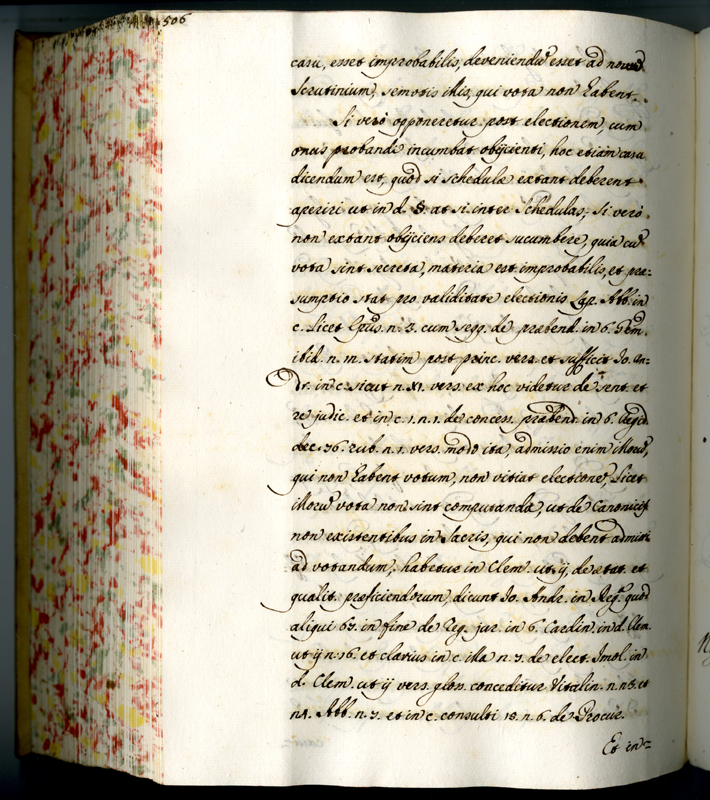 506
casu, esset improbabilis, deveniendũ esset ad novũ
Scrutinium, semotis illis, qui vota non habent.
Si verò opponeretur post electionem, cum
onus probandi incumbat obijcienti, hoc etiam casu
dicendum est, quòd si schedulæ extant deberent
aperiri ut in d. §. at si inter schedulas; Si verò
non extant obijciens deberet sucumbere, quia cũ
vota sint secreta, materia est improbabilis, et præ=
sumptio stat pro validitate electionis Lap. Abb. in
c. Licet Epũs. n. 3. cum seqq. de præbend. in 6. Gem.
ibid. n. m. statim post princ. vers. et sufficit Jo. An=
dr. in c. sicut n. XI. vers. ex hoc videtur de sent. et
re judic. et in c. 1. n. 1. de concess. præbend. in 6. Ægid.
dec. 76. sub. n. 1. vers. modo ita, admissio enim illorũ,
qui non habent votum, non vitiat electionẽ, licet
illorũ vota non sint computanda, ut de Canonicis
non existentibus in Sacris, qui non debent admitti
ad votandum, habetur in Clem. ut ij, de ætat. et
qualit. præficiendorum, dicunt Jo. Andr. in Reg. quod
aliqui 67. in fine de Reg. jur. in 6. Cardin. in d. Clem.
ut ij n. 16. et clarius in c. illa n. 7. de elect. Imol. in
d. Clem. ut ij vers. gloss. conceditur Vitalin. n. n8. et
n4. Abb. n. 7. et in c. consulti 18. n. 6. de Procur.
Et in=